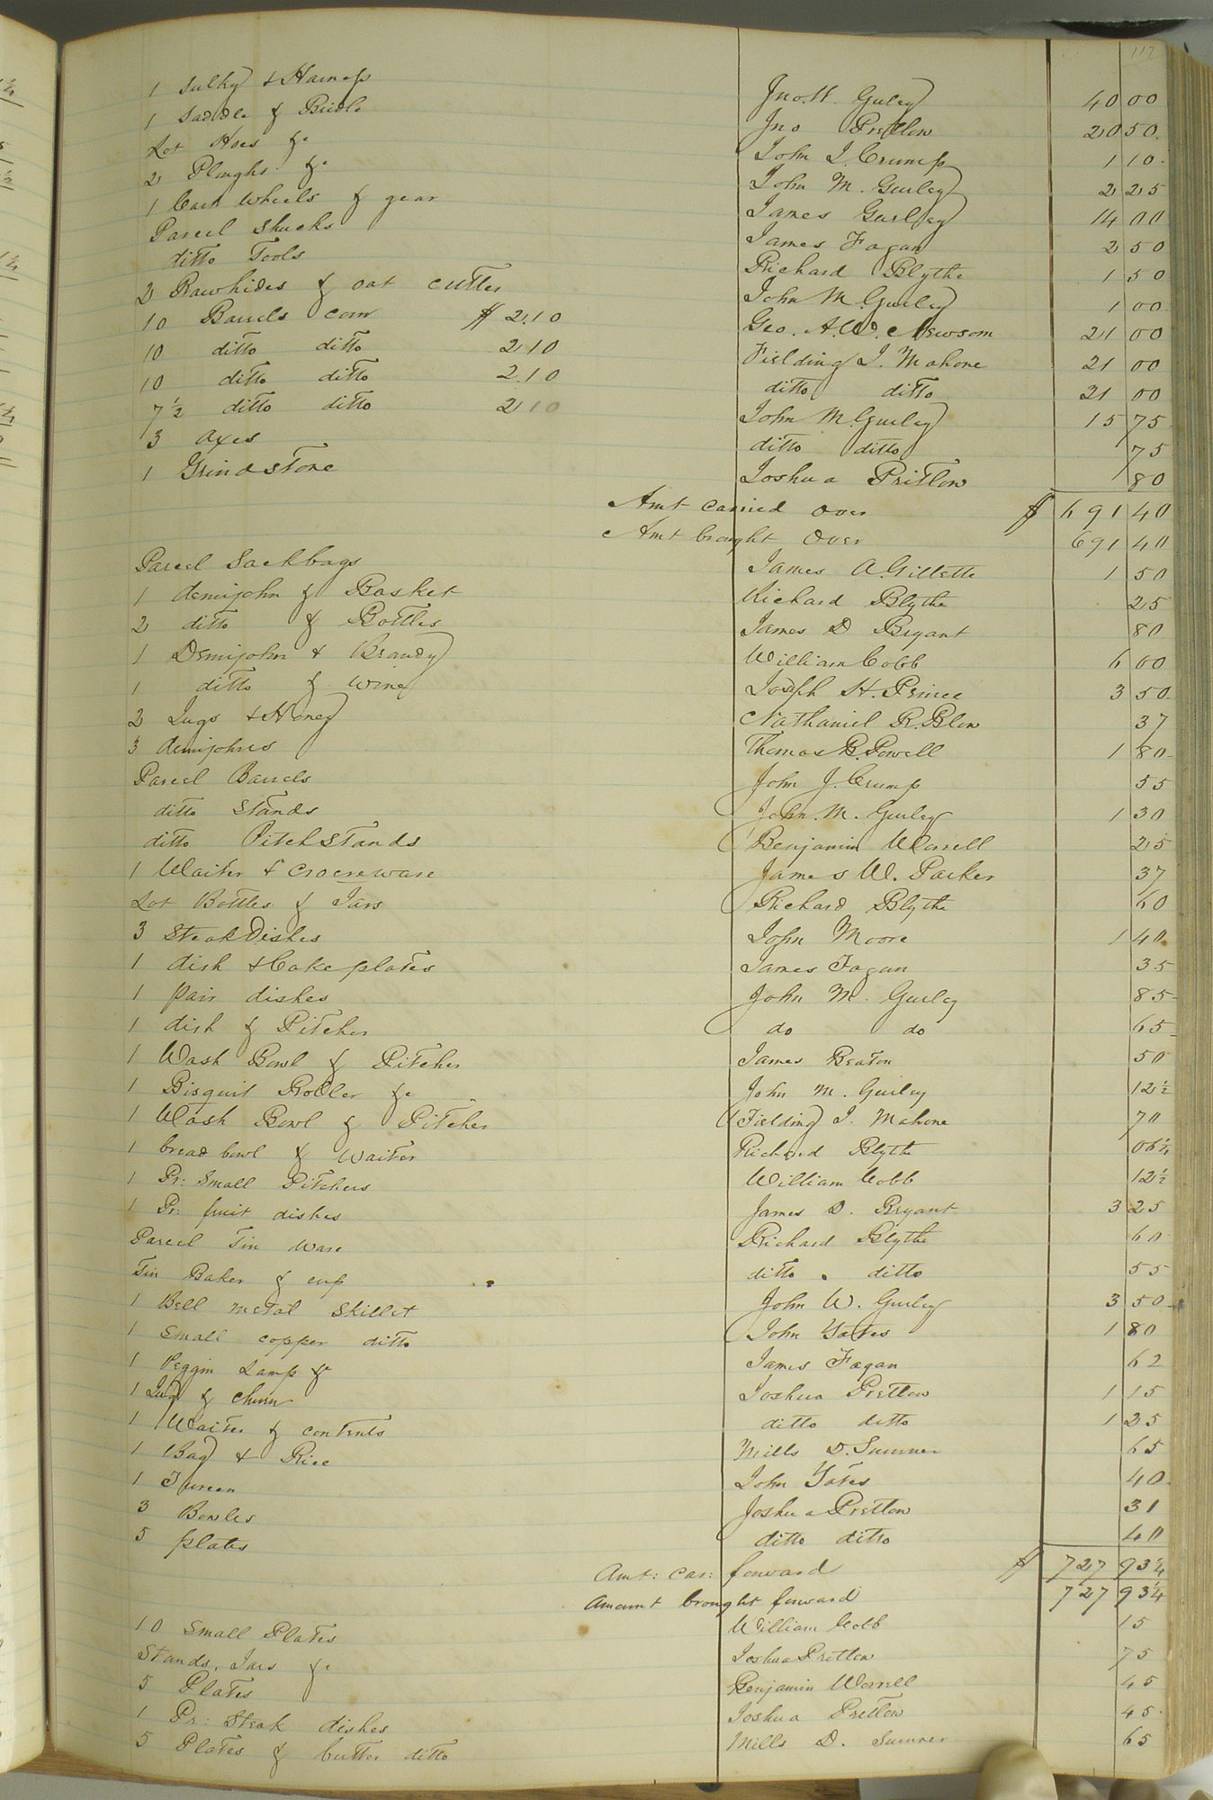 117
1 Sulky & Harness Jno. W. Gurley 40 00
1 Saddle & Bridle Jno Pretlow 20 50
Lot Hoes &c John J. Crump 1 10
2 Ploughs &c John M. Gurley 2 25
1 Cart Wheels & gear James Gurley 14 00
Parcel Shucks James Fagan 2 50
ditto Tools Richard Blythe 1 50
2 Rawhides & oat cutter John M. Gurley 1 00
10 Barrels corn $ 2.10 Geo. A. W. Newsom 21 00
10 ditto ditto 2.10 Fielding J. Mahone 21 00
10 ditto ditto 2.10 ditto ditto 21 00
7½ ditto ditto 2.10 John M. Gurley 15 75
3 axes ditto ditto 75
1 Grindstone Joshua Pretlow 80
Amt carried over $ 691 40
Amt brought Over 691 40
Parcel Sackbags James A. Gillette 1 50
1 demijohn & Basket Richard Blythe 25
2 ditto & Bottles James D Bryant 80
1 Demijohn & Brandy William Cobb 6 00
1 ditto & Wine Joseph H. Prince 3 50
2 Jugs & Honey Nathaniel R. Blow 37
3 demijohns Thomas B. Powell 1 80
Parcel Barrels John J. Crump 55
ditto Stands John. M. Gurley 1 30
ditto Pitch Stands Benjamin Worrell 25
1 Waiter & Crocreware James W. Parker 37
Lot Bottles & Jars Richard Blythe 60
3 Steak Dishes John Moore 1 40
1 dish & Cake plates James Fagan 35
1 pair dishes John M. Gurley 85
1 dish & Pitcher do do 65
1 Wash Bowl & Pitcher James Beaton 50
1 Bisquit Roller &c John M. Gurley 12½
1 Wash Bowl & Pitcher Fielding J. Mahone 70
1 bread bowl & Waiter Richard Blythe 06¼
1 Pr: Small Pitchers William Cobb 12½
1 Pr: fruit dishes James D. Bryant 3 25
Parcel Tin Ware Richard Blythe 60
Tin Baker & cup ditto ditto 55
1 Bell metal Skillet John W. Gurley 3 50
1 Small copper ditto John Yates 1 80
1 Peggin Lamp &c James Fagan 62
1 Jug & churn Joshua Pretlow 1 15
1 Waiter & contents ditto ditto 1 25
1 Bag & Rice Mills D. Sumner 65
1 Tureen John Yates 40
3 Bowles Joshua Pretlow 31
5 plates ditto ditto 40
Amt: car: forward $ 727 93¼
Amount brought forward 727 93¼
10 Small Plates William Cobb 15
Stands, Jars &c Joshua Pretlow 75
5 Plates Benjamin Worrell 45
1 Pr: Steak dishes Joshua Pretlow 45
5 Plates & butter ditto Mills D. Sumner 65